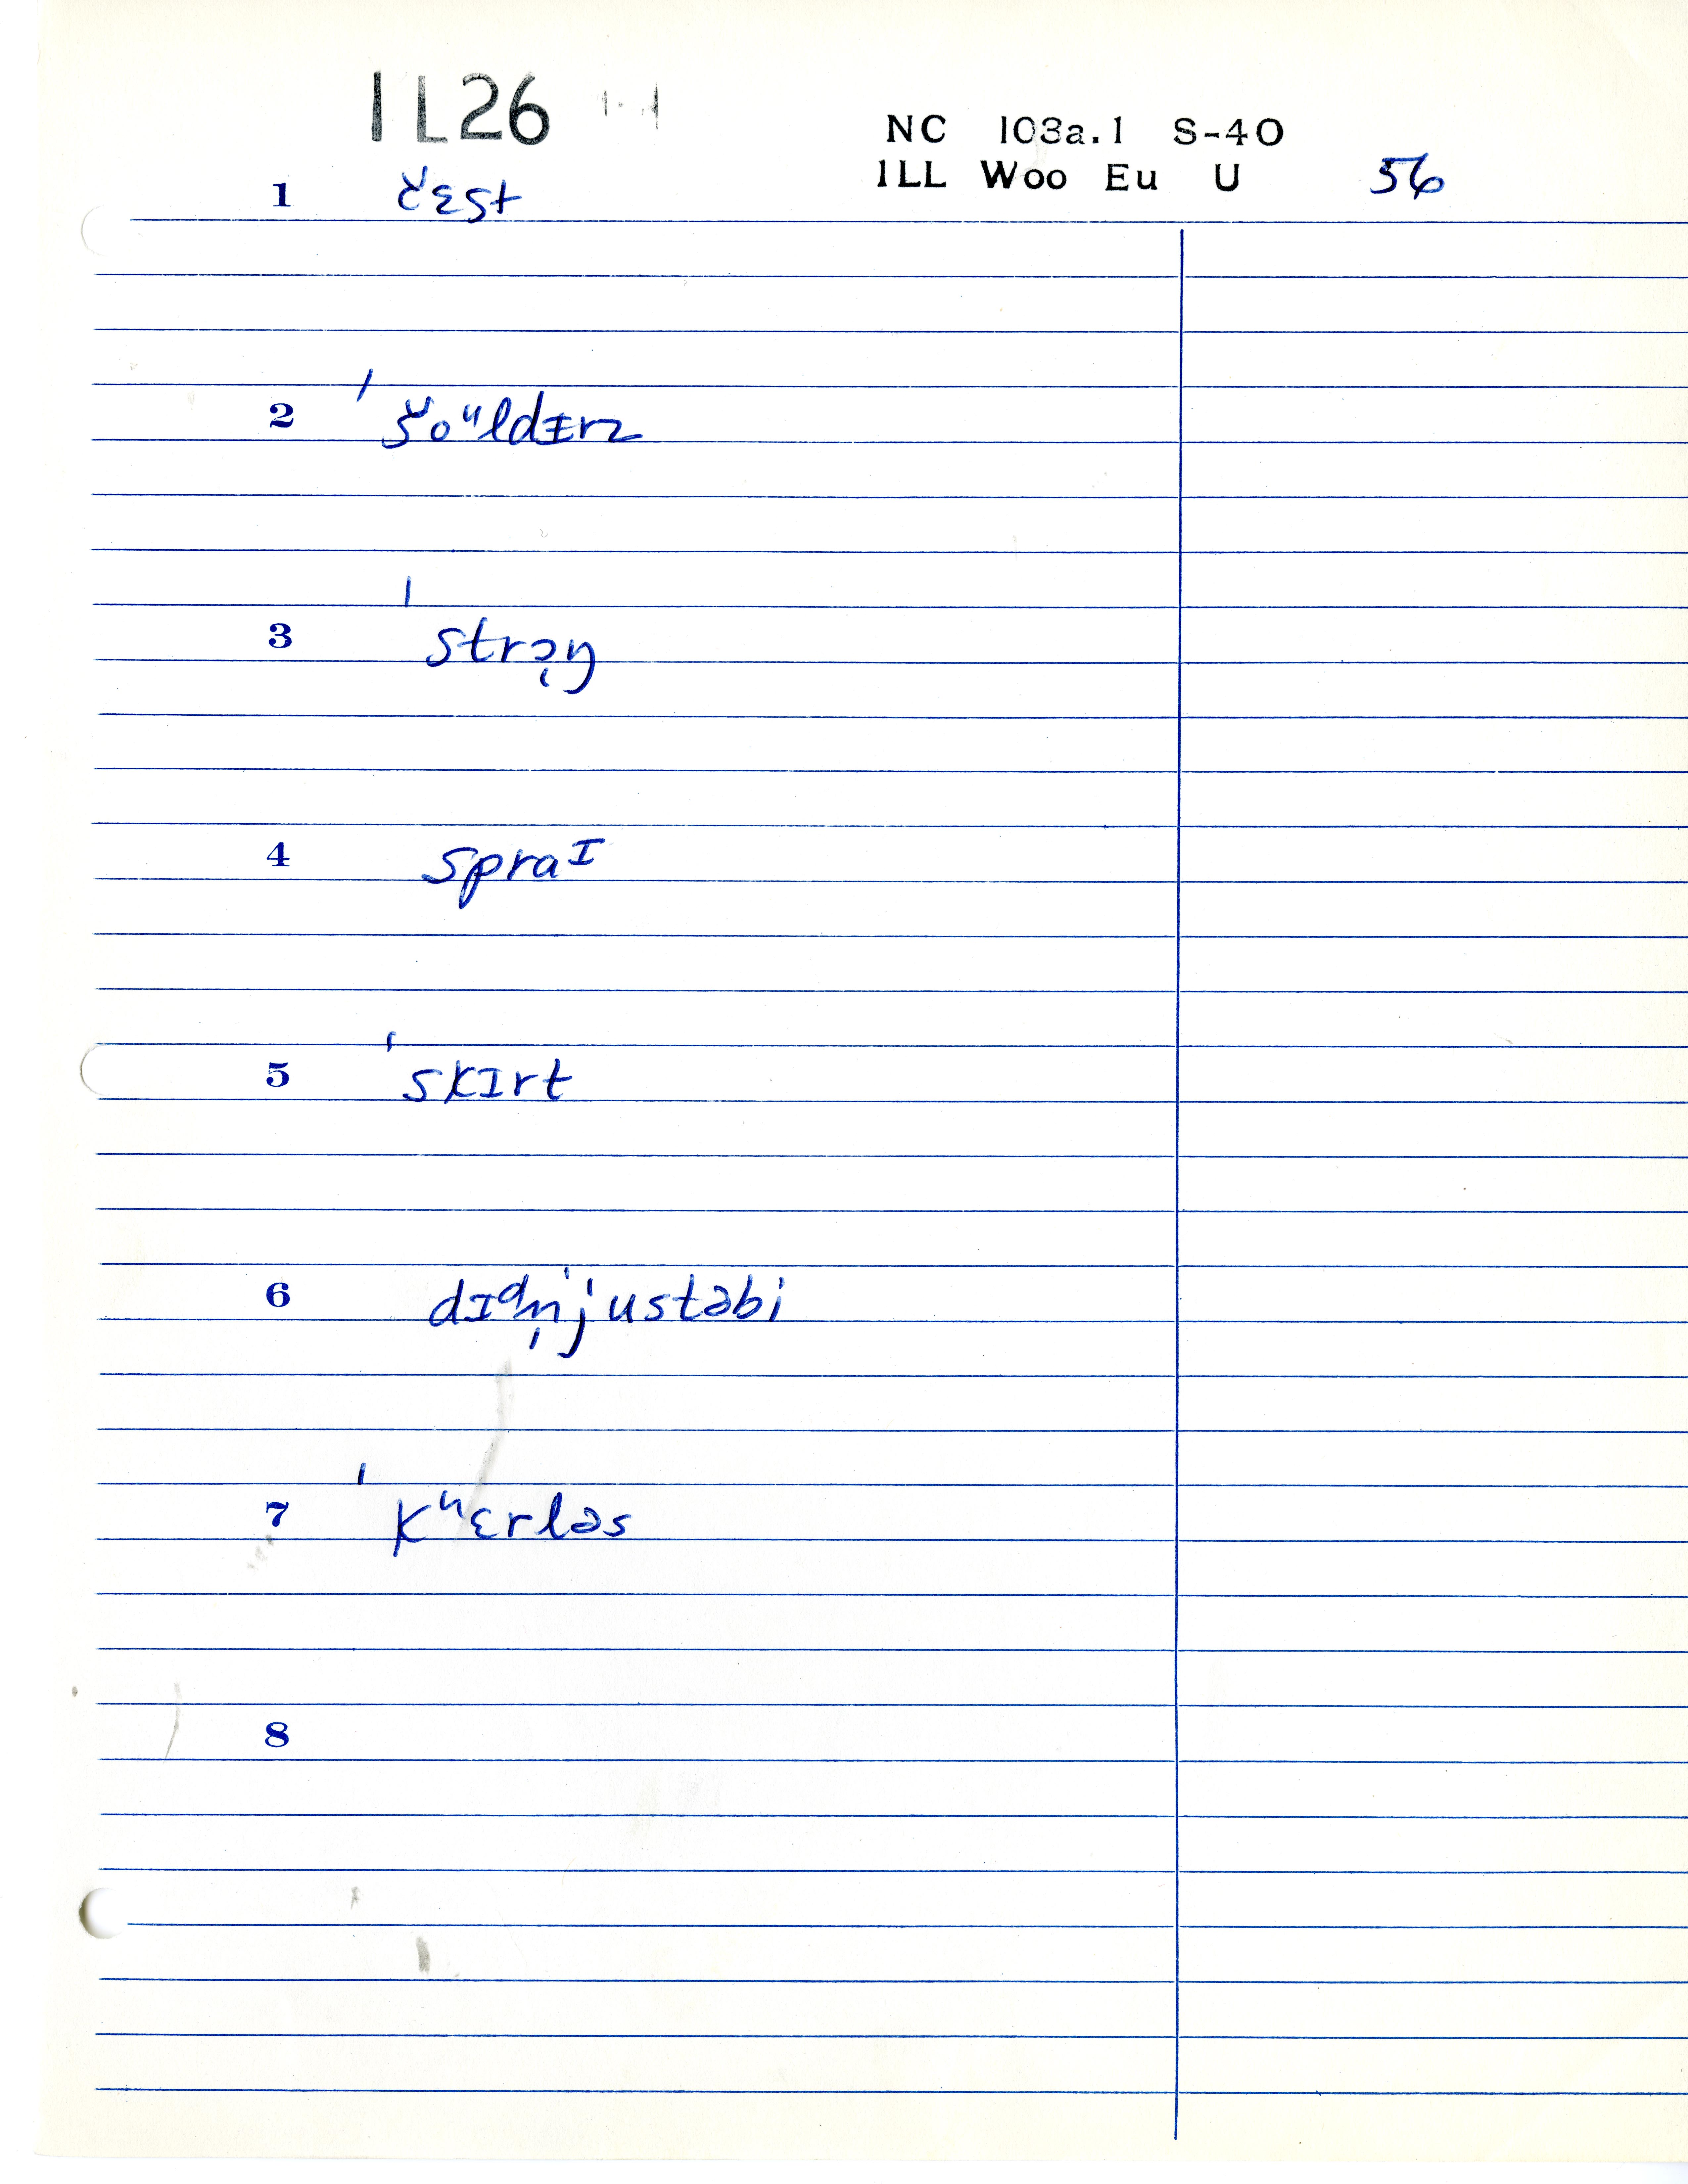 IL26
NC 103a.1 S-40
ILL Woo Eu U 56
1 čɛst
2 ˈšoᵘldɪrz
3 ˈstrɔ̨ŋ
4 spraᴵ
5 ˈskɪrt
6 dɪᵈn̩ˈjustəbi
7 ˈkᵘɛrləs
8